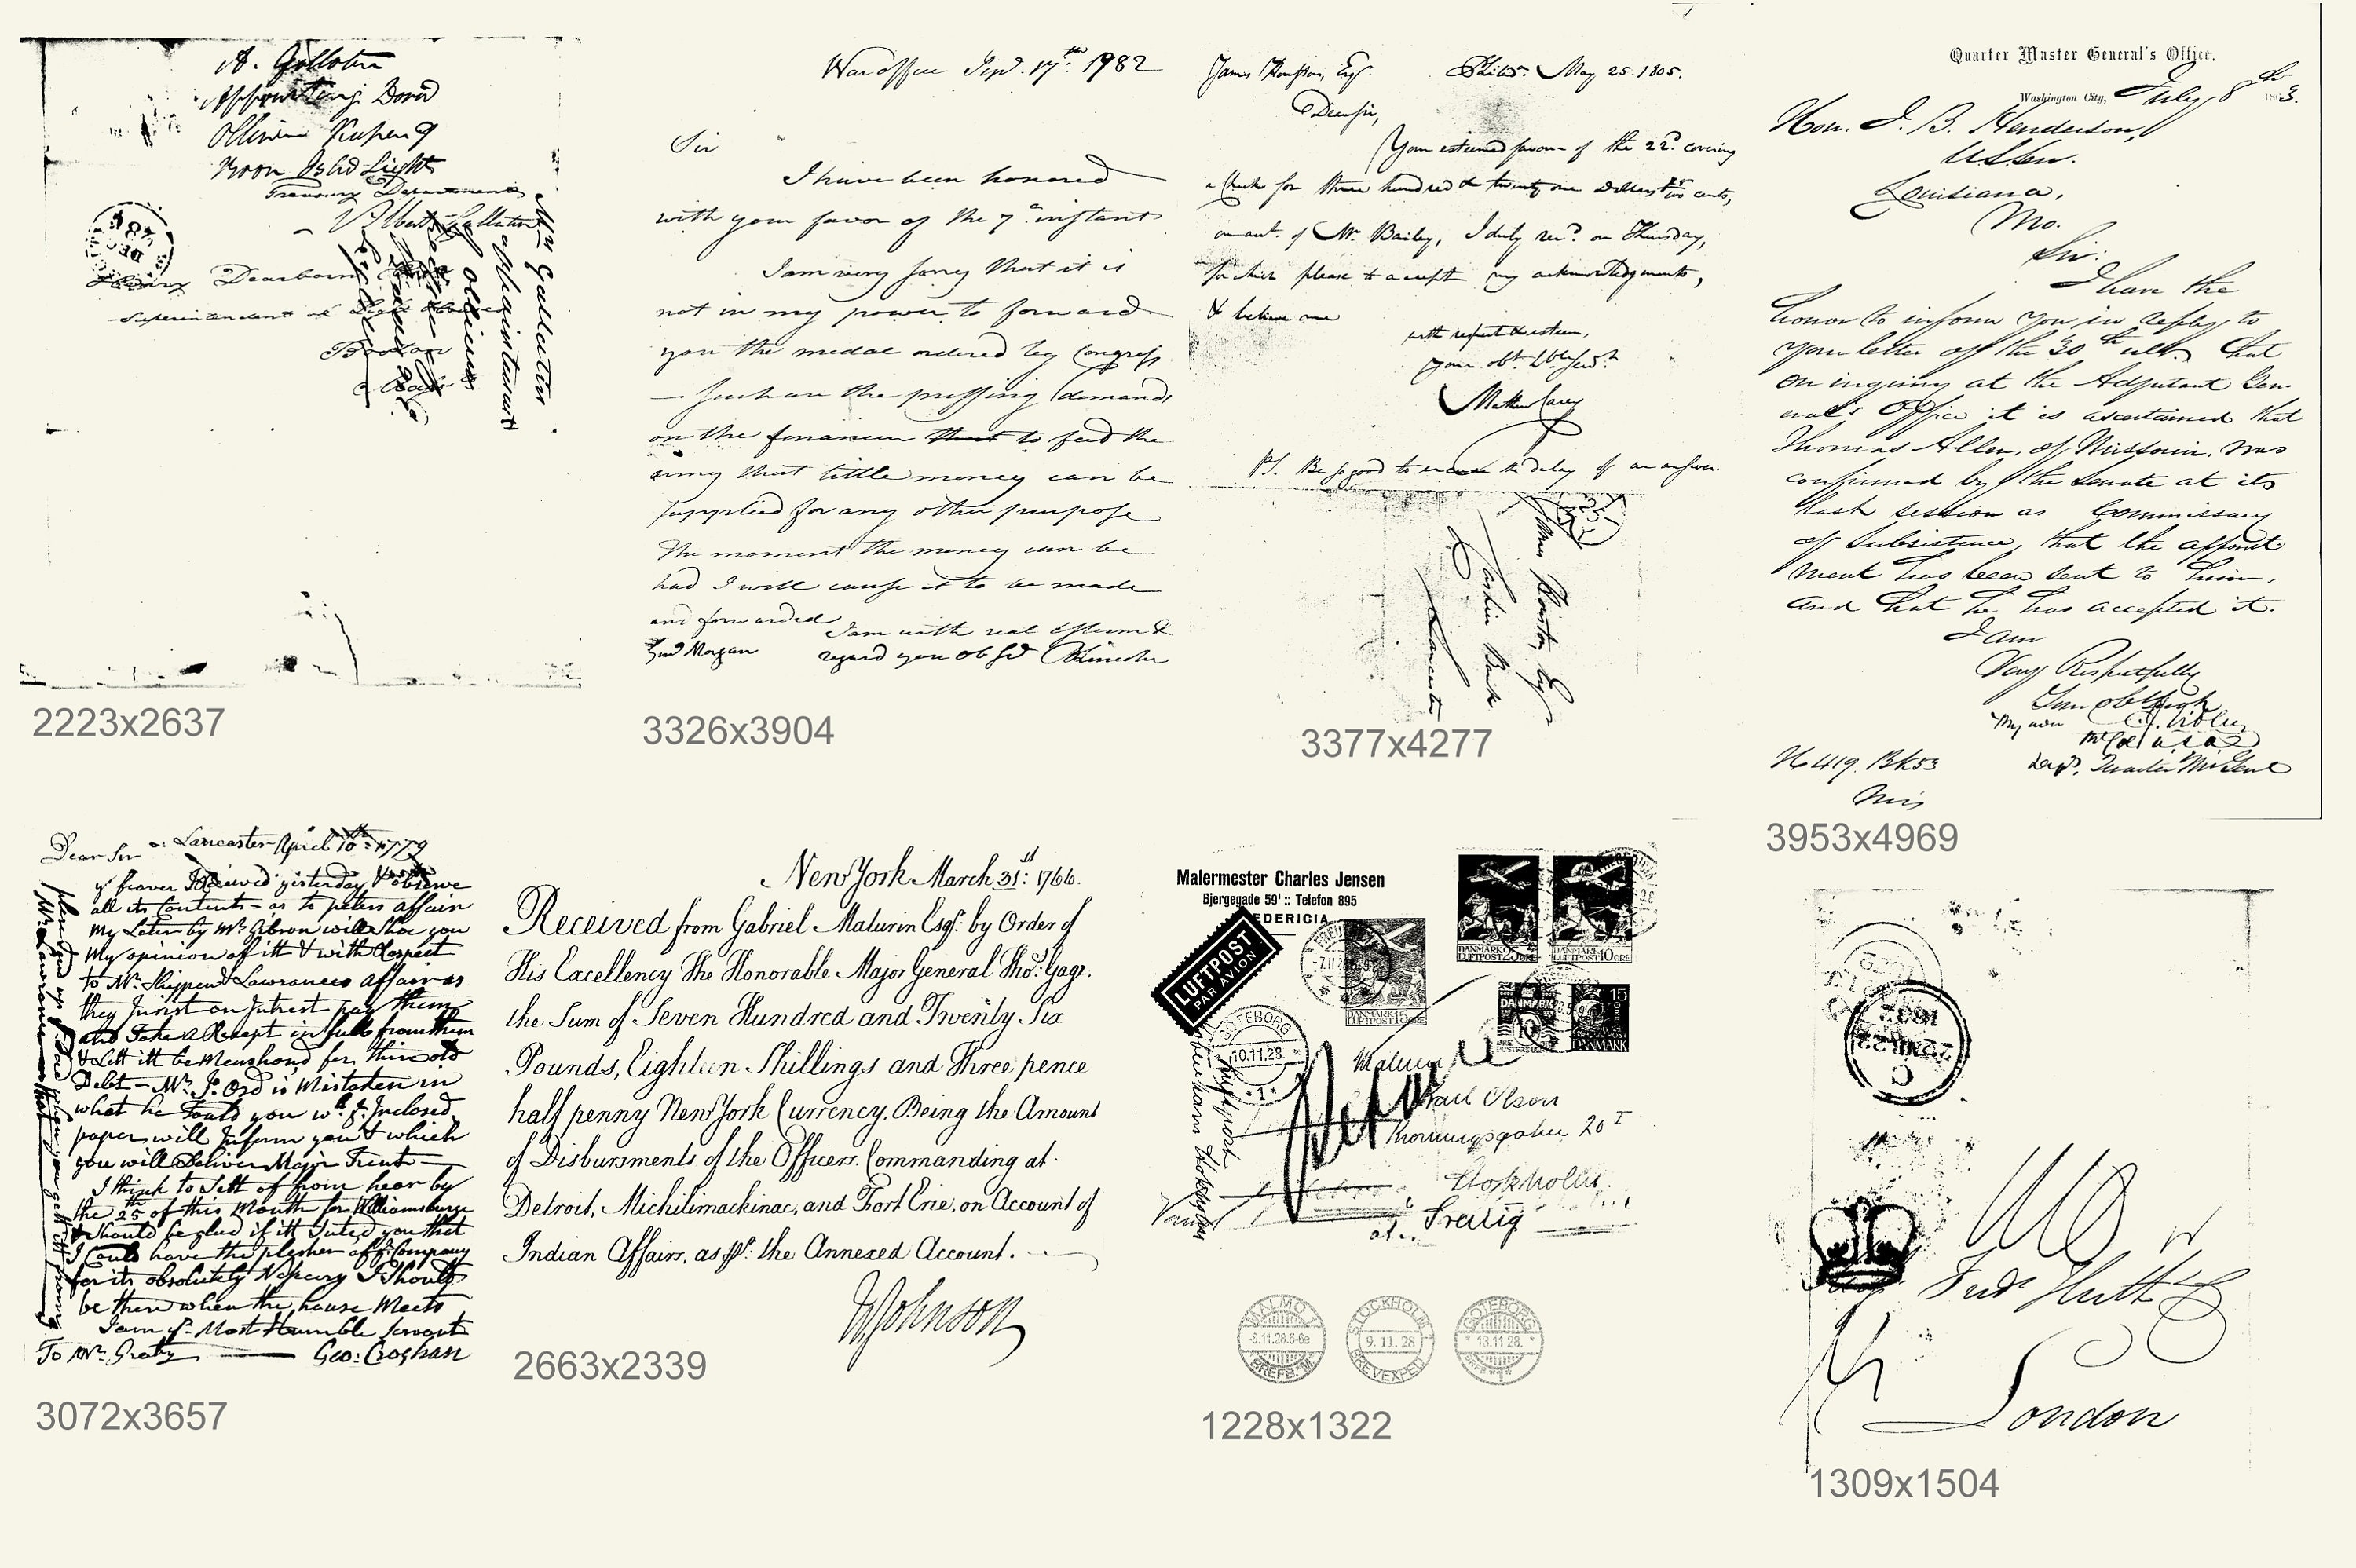 A. Gallatin
appointing David
Oliver Keeper of
Moon Isld Light
Treasury Department
Albert Gallatin
Henry Dearborn
Superintendent of Light Houses
Boston
Mr Gallatin
DEC
2223x2637
War office Sepr. 17th. 1982
Sir
I have been honored
with your favor of the 7th instant
I am very sorry that it is
not in my power to forward
you the medal ordered by Congress
— Such are the pressing demands
on the financier that to feed the
army that little money can be
supplied for any other purpose
The moment the money can be
had I will cause it to be made
and forwarded
I am with real esteem &
regard your ob Sr BLincoln
Genl Morgan
3326x3904
James Houston, Esqr. Philada. May 25. 1805.
Dear sir,
Your esteemed favour of the 22d. covering
a check for three hundred & twenty one dollars cents,
on acct. of Mr. Bailey, I duly recd. on Thursday,
for which please to accept my acknowledgments,
& believe me
with respect & esteem,
your obt. hble servt.
Mathew Carey
PS. Be so good to excuse the delay of an answer.
James Houston, Esqr
Cashier Bank
Lancaster
3377x4277
Quarter Master General's Office.
Washington City, July 8th 1863.
Hon. J. B. Henderson,
U.S. Sen.
Louisiana,
Mo.
Sir:
I have the
honor to inform you in reply to
your letter of the 30th ult. that
on inquiry at the Adjutant Gen-
eral's Office it is ascertained that
Thomas Allen, of Missouri, was
confirmed by the Senate at its
last session as Commissary
of Subsistence, that the appoint-
ment has been sent to him,
and that he has accepted it.
I am
Very Respectfully
Your obt
No 419. Bk 53
3953x4969
Dear Sir Lancaster April 10th 1779
yr favor I Received yesterday & observe
all its Contents - as to peters affair
my Leter by Mr. Gibson will Shoe you
My opinion of itt & with Respect
to Mr. Shippen & Lawrances affair as
they Insist on Intrest pay them
and Take a Recept in full from them
& Lett itt be Menshond for thire old
Debt - Mr. Js. Ord is Mistaken in
what he Tould you ye. Inclosed
paper will Inform you & which
you will Deliver Major Trent —
I think to Sett of from hear by
the 25th of this Mouth for Williamsburge
& Should be glad if itt Suted you that
I Could have the plesher of yr. Company
for its absolutely Nesesery I Should
be there when the house Meets
I am yr. Most Humble Servant
To Mr. Gratz — Geo: Croghan
3072x3657
New York March 31st: 1766.
Received from Gabriel Maturin Esqr: by Order of
His Excellency The Honorable Major General Thos. Gage.
the Sum of Seven Hundred and Twenty Six
Pounds, Eighteen Shillings and Three pence
half penny New York Currency. Being the Amount
of Disbursments of the Officers Commanding at
Detroit, Michilimackinac, and Fort Erie, on Account of
Indian Affairs, as pr: the Annexed Account.
WJohnson
2663x2339
Malermester Charles Jensen
Bjergegade 59' :: Telefon 895
EDERICIA
LUFTPOST
PAR AVION
DANMARK 25 ØRE
LUFTPOST 10 ORE
DANMARK 15
LUFTPOST ORE
DANMARK
15
DANMARK
GÖTEBORG
10.11.28.
1
Karl Olson
20 I
Stockholm
MALMÖ 1
-6.11.28.5-6e.
BREFB.M
STOCKHOLM 1
9. 11. 28
BREVEXPED
GÖTEBORG
13.11.28.
1
1228x1322
Fredk Huth & Co
London
1309x1504